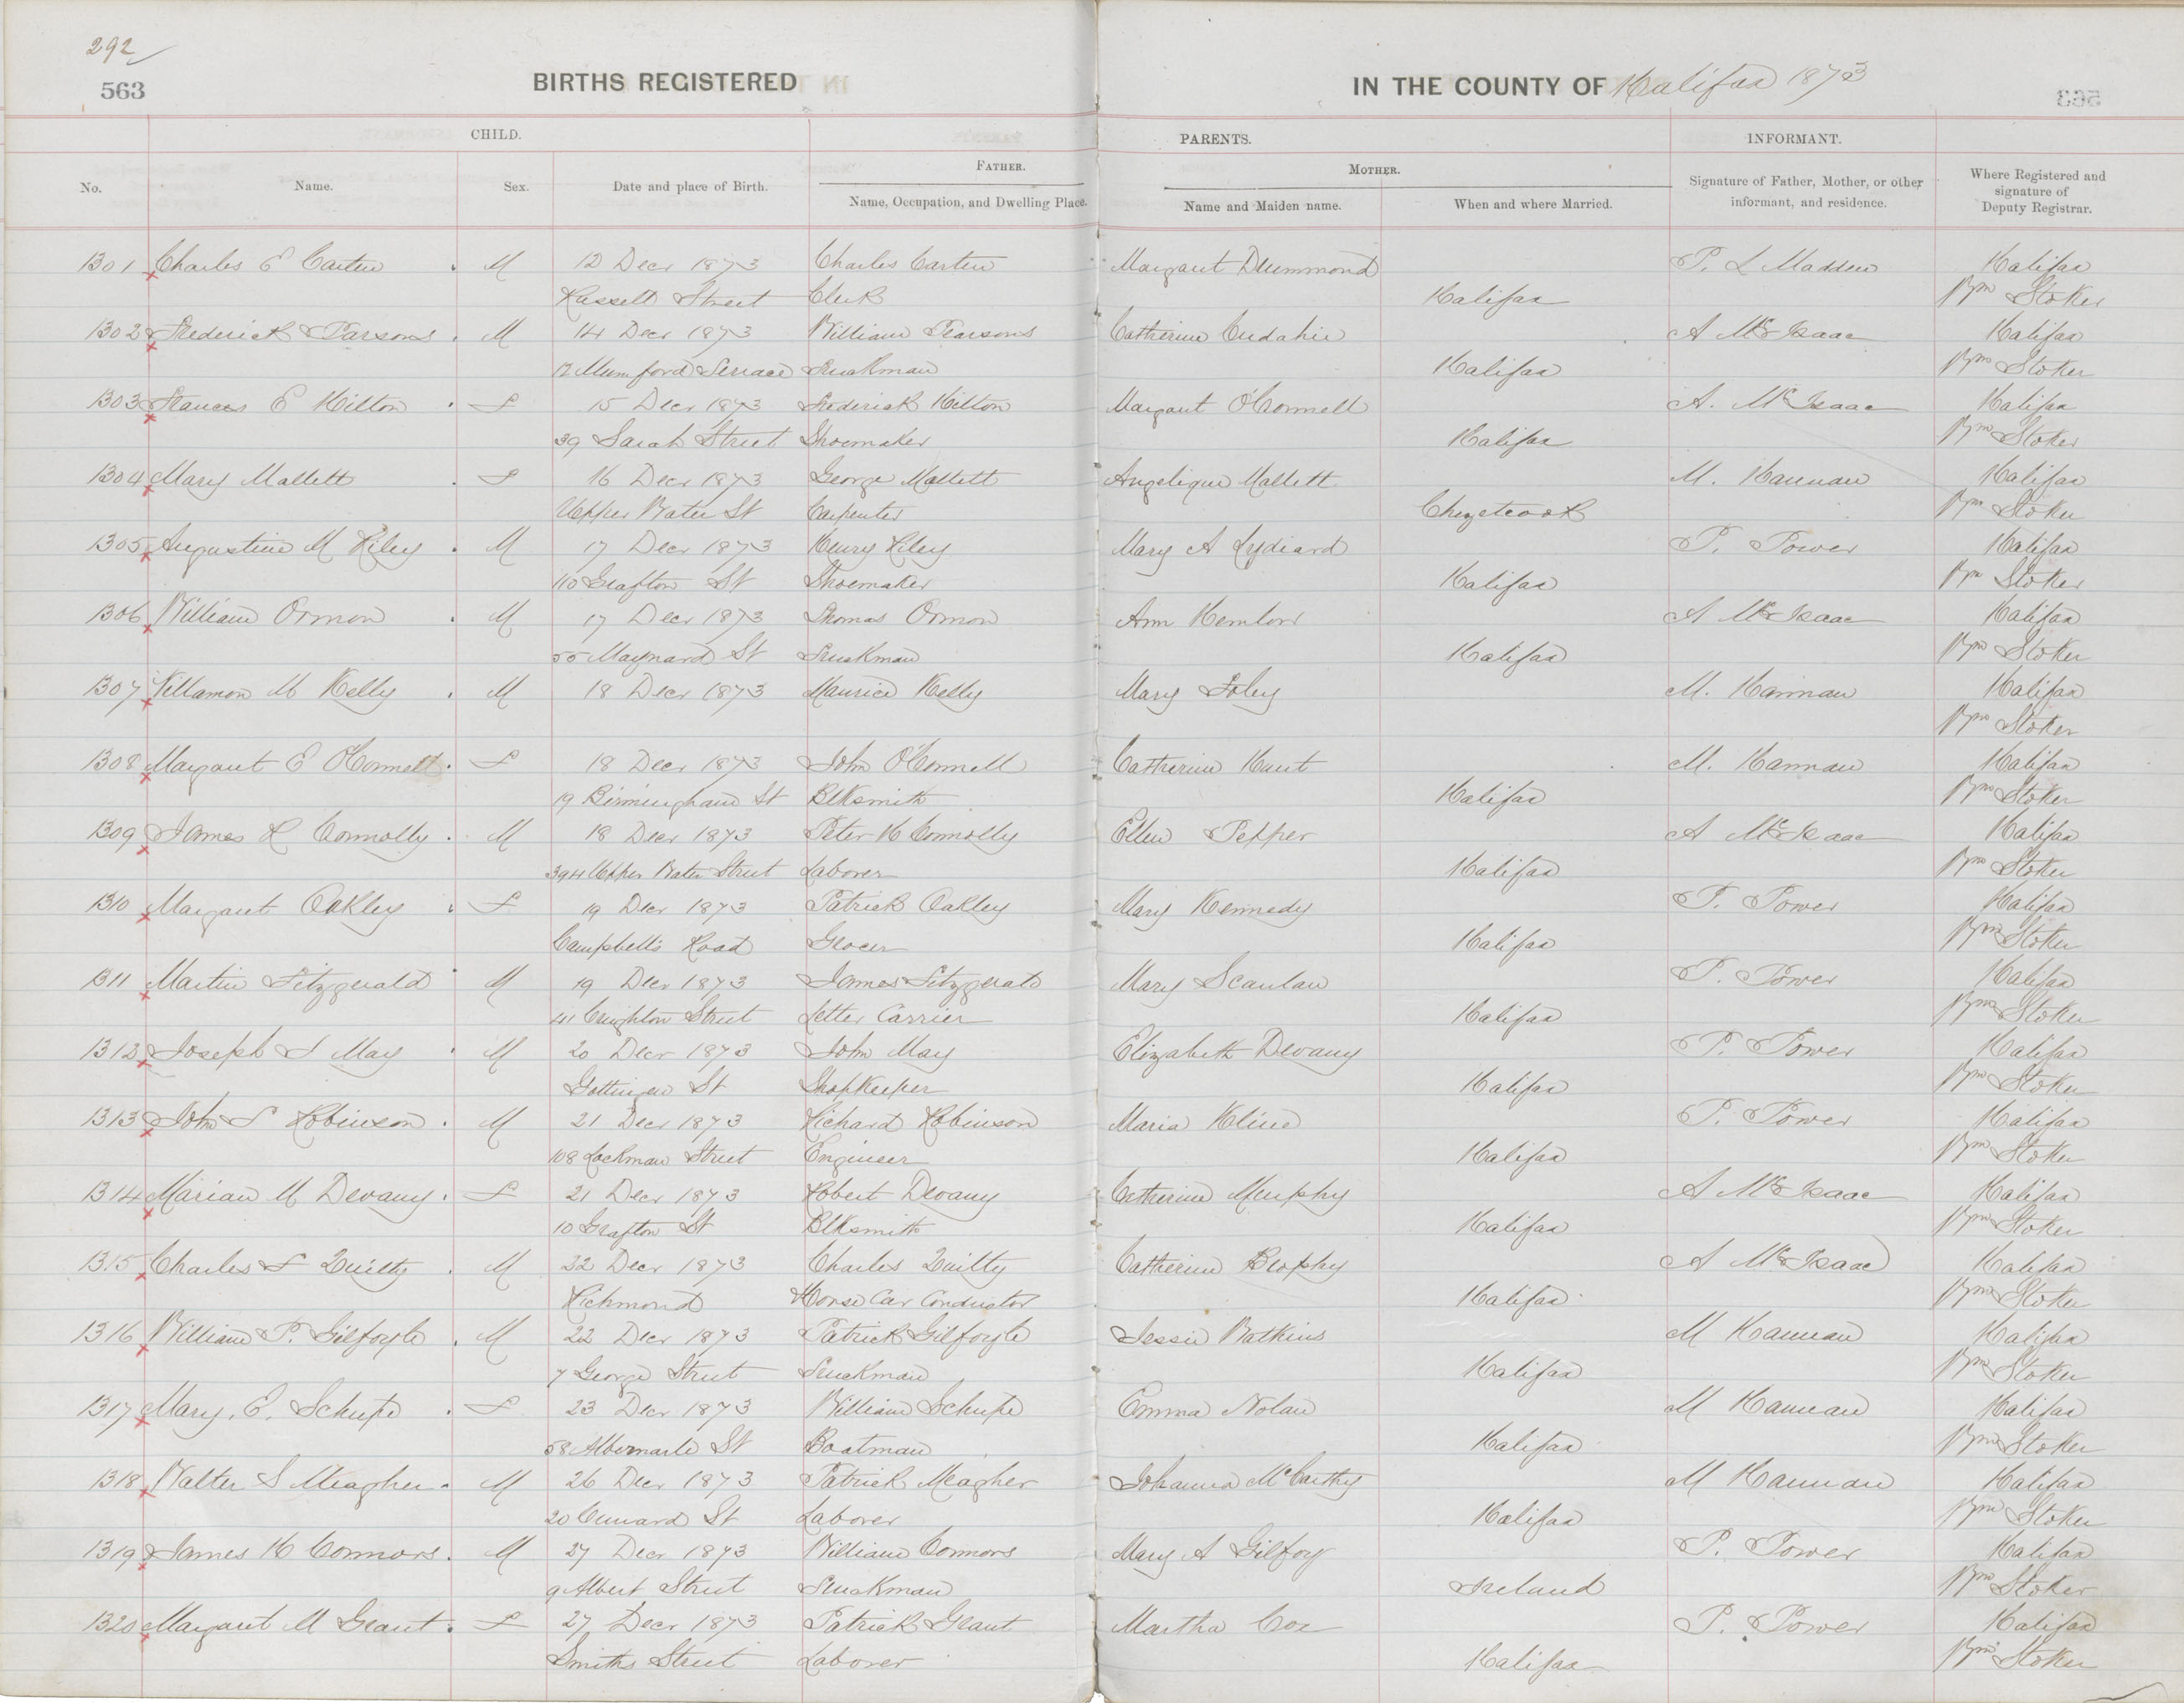 292
563
BIRTHS REGISTERED
IN THE COUNTY OF Halifax 1873
CHILD.
PARENTS.
INFORMANT.
No.
Name.
Sex.
Date and place of Birth.
FATHER.
Name, Occupation, and Dwelling Place.
MOTHER.
Name and Maiden name.
When and where Married.
Signature of Father, Mother, or other informant, and residence.
Where Registered and signature of Deputy Registrar.
1301 Charles E Carten M 12 Decr 1873 Charles Carten Margaret Drummond P. L Madden Halifax
Russell Street Clerk Halifax Wm Stoker
1302 Frederick Parsons M 14 Decr 1873 William Pearsons Catherine Cudahie A McIsaac Halifax
12 Mumford Terrace Truckman Halifax Wm Stoker
1303 Frances E Hilton F 15 Decr 1873 Frederick Hilton Margaret O'Connell A. McIsaac Halifax
39 Sarah Street Shoemaker Halifax Wm Stoker
1304 Mary Mallett F 16 Decr 1873 George Mallett Angelique Mallett M. Hannan Halifax
Upper Water St Carpenter Chezetcook Wm Stoker
1305 Augustine M Riley M 17 Decr 1873 Henry Riley Mary A Lydiard P. Power Halifax
110 Grafton St Shoemaker Halifax Wm Stoker
1306 William Ormon M 17 Decr 1873 Thomas Ormon Ann A McIsaac Halifax
55 Maynard St Truckman Halifax Wm Stoker
1307 M Kelly M 18 Decr 1873 Maurice Kelly Mary Foley M. Hannan Halifax
Wm Stoker
1308 Margaret E O'Connell F 18 Decr 1873 John O'Connell Catherine M. Hannan Halifax
19 Birmingham St Blksmith Halifax Wm Stoker
1309 James H Connolly M 18 Decr 1873 Peter H Connolly Ellen Pepper A McIsaac Halifax
394 Upper Water Street Laborer Halifax Wm Stoker
1310 Margaret Oakley F 19 Decr 1873 Patrick Oakley Mary Kennedy P. Power Halifax
Campbell's Road Grocer Halifax Wm Stoker
1311 Martin Fitzgerald M 19 Decr 1873 James Fitzgerald Mary Scanlan P. Power Halifax
41 Creighton Street Letter Carrier Halifax Wm Stoker
1312 Joseph S May M 20 Decr 1873 John May Elizabeth Devany P. Power Halifax
Gottingen St Shopkeeper Halifax Wm Stoker
1313 John S Robinson M 21 Decr 1873 Richard Robinson Maria Kline P. Power Halifax
108 Lockman Street Engineer Halifax Wm Stoker
1314 Marian M Devany F 21 Decr 1873 Robert Devany Catherine Murphy A McIsaac Halifax
10 Grafton St Blksmith Halifax Wm Stoker
1315 Charles F Quilty M 22 Decr 1873 Charles Quilty Catherine Brophy A McIsaac Halifax
Richmond Horse Car Conductor Halifax Wm Stoker
1316 William P. Gilfoyle M 22 Decr 1873 Patrick Gilfoyle Jessie Watkins M Hannan Halifax
7 George Street Truckman Halifax Wm Stoker
1317 Mary. E. Schupe F 23 Decr 1873 William Schupe Emma Nolan M Hannan Halifax
58 Albermarle St Boatman Halifax Wm Stoker
1318 Walter S Meagher M 26 Decr 1873 Patrick Meagher Johanna McCarthy M Hannan Halifax
20 Cunard St Laborer Halifax Wm Stoker
1319 James H Connors M 27 Decr 1873 William Connors Mary A Gilfoy P. Power Halifax
9 Albert Street Truckman Ireland Wm Stoker
1320 Margaret M Grant F 27 Decr 1873 Patrick Grant Martha Cox P. Power Halifax
Smiths Street Laborer Halifax Wm Stoker